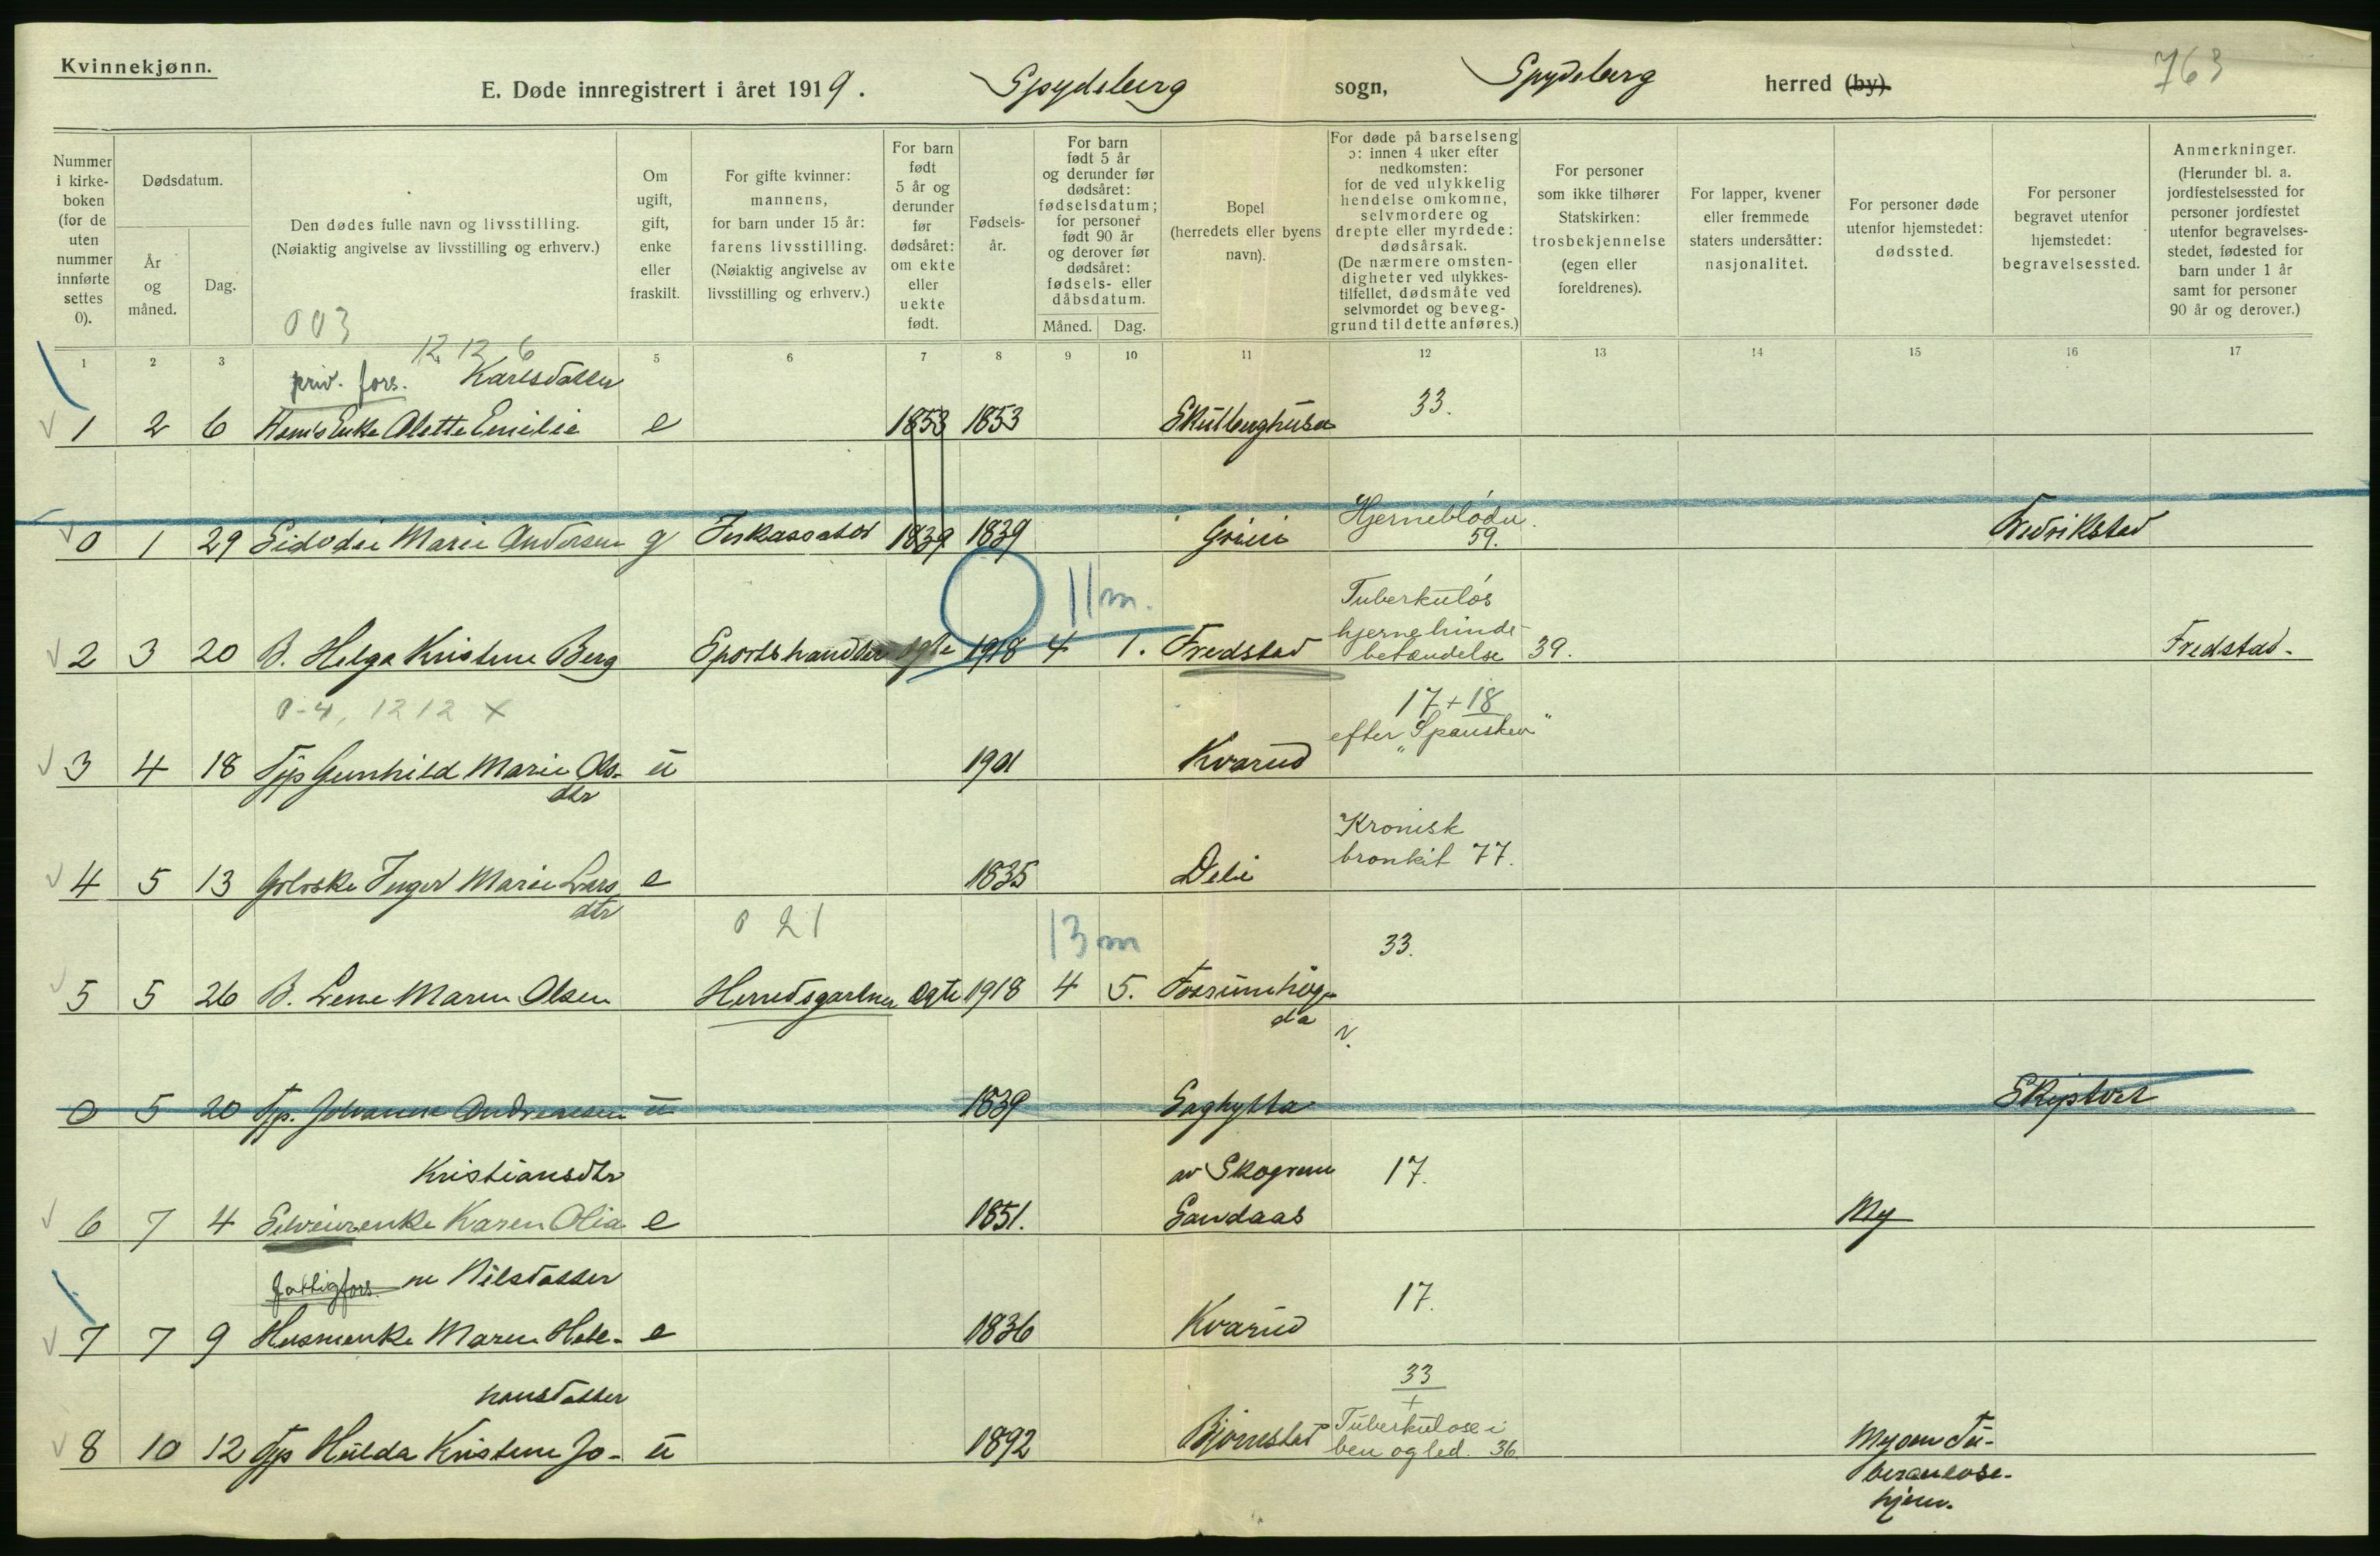 Kvinnekjønn.
E. Døde innregistrert i året 1919. Spydeberg sogn, Spydeberg herred (by).
763
Nummer i kirkeboken (for de uten nummer innførte settes 0).
Dødsdatum.
År og måned.
Dag.
Den dødes fulle navn og livsstilling.
(Nøiaktig angivelse av livsstilling og erhverv.)
Om ugift, gift, enke eller fraskilt.
For gifte kvinner: mannens, for barn under 15 år: farens livsstilling.
(Nøiaktig angivelse av livsstilling og erhverv.)
For barn født 5 år og derunder før dødsåret: om ekte eller uekte født.
Fødselsår.
For barn født 5 år og derunder før dødsåret: fødselsdatum; for personer født 90 år og derover før dødsåret: fødsels- eller dåbsdatum.
Måned. Dag.
Bopel
(herredets eller byens navn).
For døde på barselseng ɔ: innen 4 uker efter nedkomsten: for de ved ulykkelig hendelse omkomne, selvmordere og drepte eller myrdede: dødsårsak.
(De nærmere omstendigheter ved ulykkestilfellet, dødsmåte ved selvmordet og beveggrund til dette anføres.)
For personer som ikke tilhører Statskirken: trosbekjennelse (egen eller foreldrenes).
For lapper, kvener eller fremmede staters undersåtter: nasjonalitet.
For personer døde utenfor hjemstedet: dødssted.
For personer begravet utenfor hjemstedet: begravelsessted.
Anmerkninger.
(Herunder bl. a. jordfestelsessted for personer jordfestet utenfor begravelsesstedet, fødested for barn under 1 år samt for personer 90 år og derover.)
003
12 12 6
1 2 3 5 6 7 8 9 10 11 12 13 14 15 16 17
priv. fors. Karlsdatter
1 2 6 Alette Emilie e 1853 1853 33.
0 1 29 Marie Andersen g Inkassator 1839 1839 Hjerneblødn. 59. Fredrikstad
11 m.
2 3 20 B. Helga Kristine Berg Sportshandler ægte 1918 4 1. Fredstad Tuberkuløs hjernehinde-betændelse 39. Fredstad.
0-4, 1212 x
17 + 18
3 4 18 Tjp Gunhild Marie Ols- u 1901 Kvarud efter "Spansken"
dtr
4 5 13 Inger Marie Lars e 1835 Kronisk bronkit 77.
dtr
0 21
13 m
5 5 26 B. Lene Maren Olsen Herredsgartner ægte 1918 4 5. 33.
da
0 5 20 Tjp. Johanne Andreassen u 1839 Saghytta Skiptvet
Kristiansdtr av
6 7 4 Karen Olia e 1851. Sandaas 17. My
fattigfors. ne Nilsdatter
7 7 9 Husmenke Maren Hele- e 1836 Kvarud 17.
hansdatter
33
+
8 10 12 Tjp Hulda Kristine Jo- u 1892 Bjørnstad Tuberkulose i ben og led. 36 Mysen Tu-
berculose-
hjem.